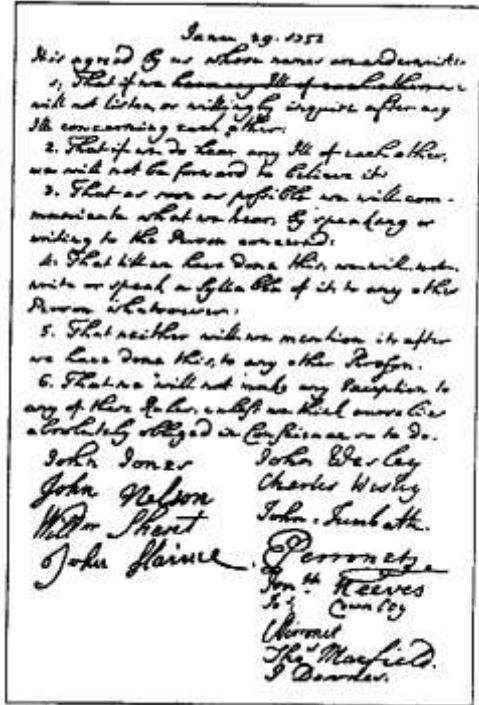 Janu. 29. 1752
It is agreed by us whose names are underwritten
1. That if we hear any Ill of each other we
will not listen, or willingly inquire after any
Ill concerning each other:
2. That if we do hear any Ill of each other,
we will not be forward to believe it:
3. That as soon as possible we will com-
municate what we hear, by speaking or
writing to the Person concerned:
4. That till we have done this, we will not
write or speak a Syllable of it, to any other
Person whatsoever:
5. That neither will we mention it, after
we have done this, to any other Person.
6. That we will not make any Exception to
any of these Rules, unless we think ourselves
absolutely obliged in Conscience so to do.
John Jones
John Nelson
Willm Shent
John Haime
John Wesley
Charles Wesley
John
E Perronet
Jonth Reeves
Jos Cownley
C Perronet
Thos Maxfield.
J Downes.